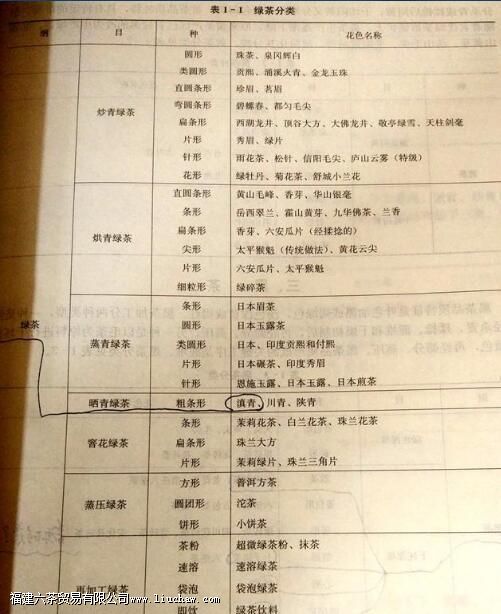 表 1-1 绿茶分类
纲 目 种 花色名称
圆形 珠茶、泉冈辉白
类圆形 贡熙、涌溪火青、金龙玉珠
直圆条形 珍眉、茗眉
弯圆条形 碧螺春、都匀毛尖
炒青绿茶 扁条形 西湖龙井、顶谷大方、大佛龙井、敬亭绿雪、天柱剑毫
片形 秀眉、绿片
针形 雨花茶、松针、信阳毛尖、庐山云雾（特级）
花形 绿牡丹、菊花茶、舒城小兰花
直圆条形 黄山毛峰、香芽、华山银毫
条形 岳西翠兰、霍山黄芽、九华佛茶、兰香
烘青绿茶 扁条形 香芽、六安瓜片（经揉捻的）
尖形 太平猴魁（传统做法）、黄花云尖
片形 六安瓜片、太平猴魁
细粒形 绿碎茶
条形 日本眉茶
绿茶 圆形 日本玉露茶
蒸青绿茶 类圆形 日本、印度贡熙和付熙
片形 日本碾茶、印度秀眉
针形 恩施玉露、日本玉露、日本煎茶
晒青绿茶 粗条形 滇青、川青、陕青
条形 茉莉花茶、白兰花茶、珠兰花茶
窨花绿茶 扁条形 珠兰大方
片形 茉莉绿片、珠兰三角片
方形 普洱方茶
蒸压绿茶 圆团形 沱茶
饼形 小饼茶
茶粉 超微绿茶粉、抹茶
速溶 速溶绿茶
再加工绿茶 袋泡 袋泡绿茶
固饮 绿茶饮料
福建六茶贸易有限公司 www.liuchaw.com